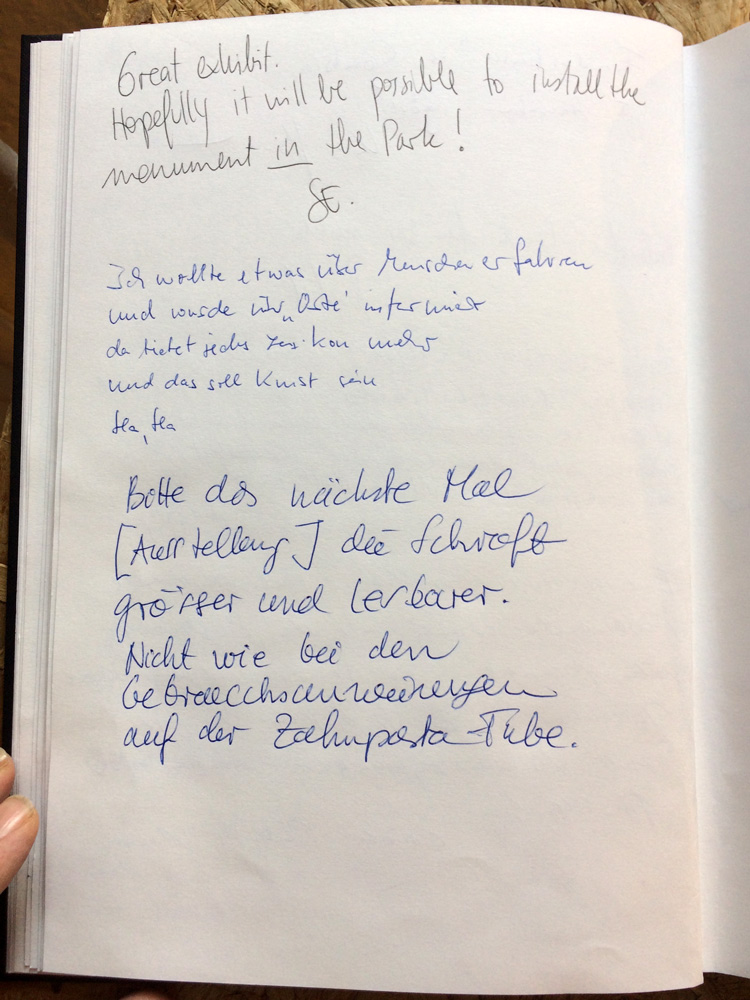 Great exhibit.
Hopefully it will be possible to install the
monument in the Park!
SE.
Ich wollte etwas über Menschen erfahren
und wurde über „Orte" informiert
da bietet jedes Lexikon mehr
und das soll Kunst sein
tea, tea
Bitte das nächste Mal
[Ausstellung] die Schrift
grösser und lesbarer.
Nicht wie bei den
Gebrauchsanweisungen
auf der Zahnpasta-Tube.